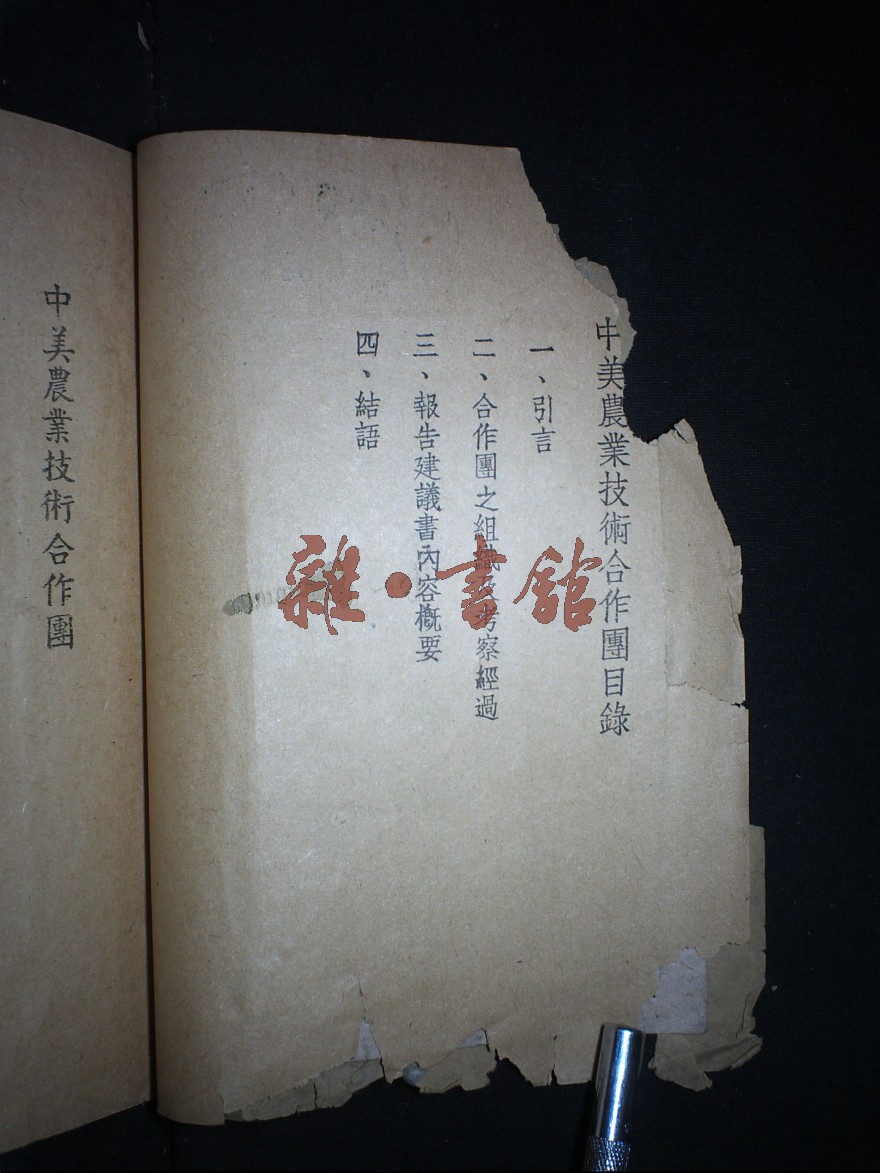 中美農業技術合作團目錄
一、引言
二、合作團之組織及考察經過
三、報告建議書內容概要
四、結語
中美農業技術合作團
雜·書館